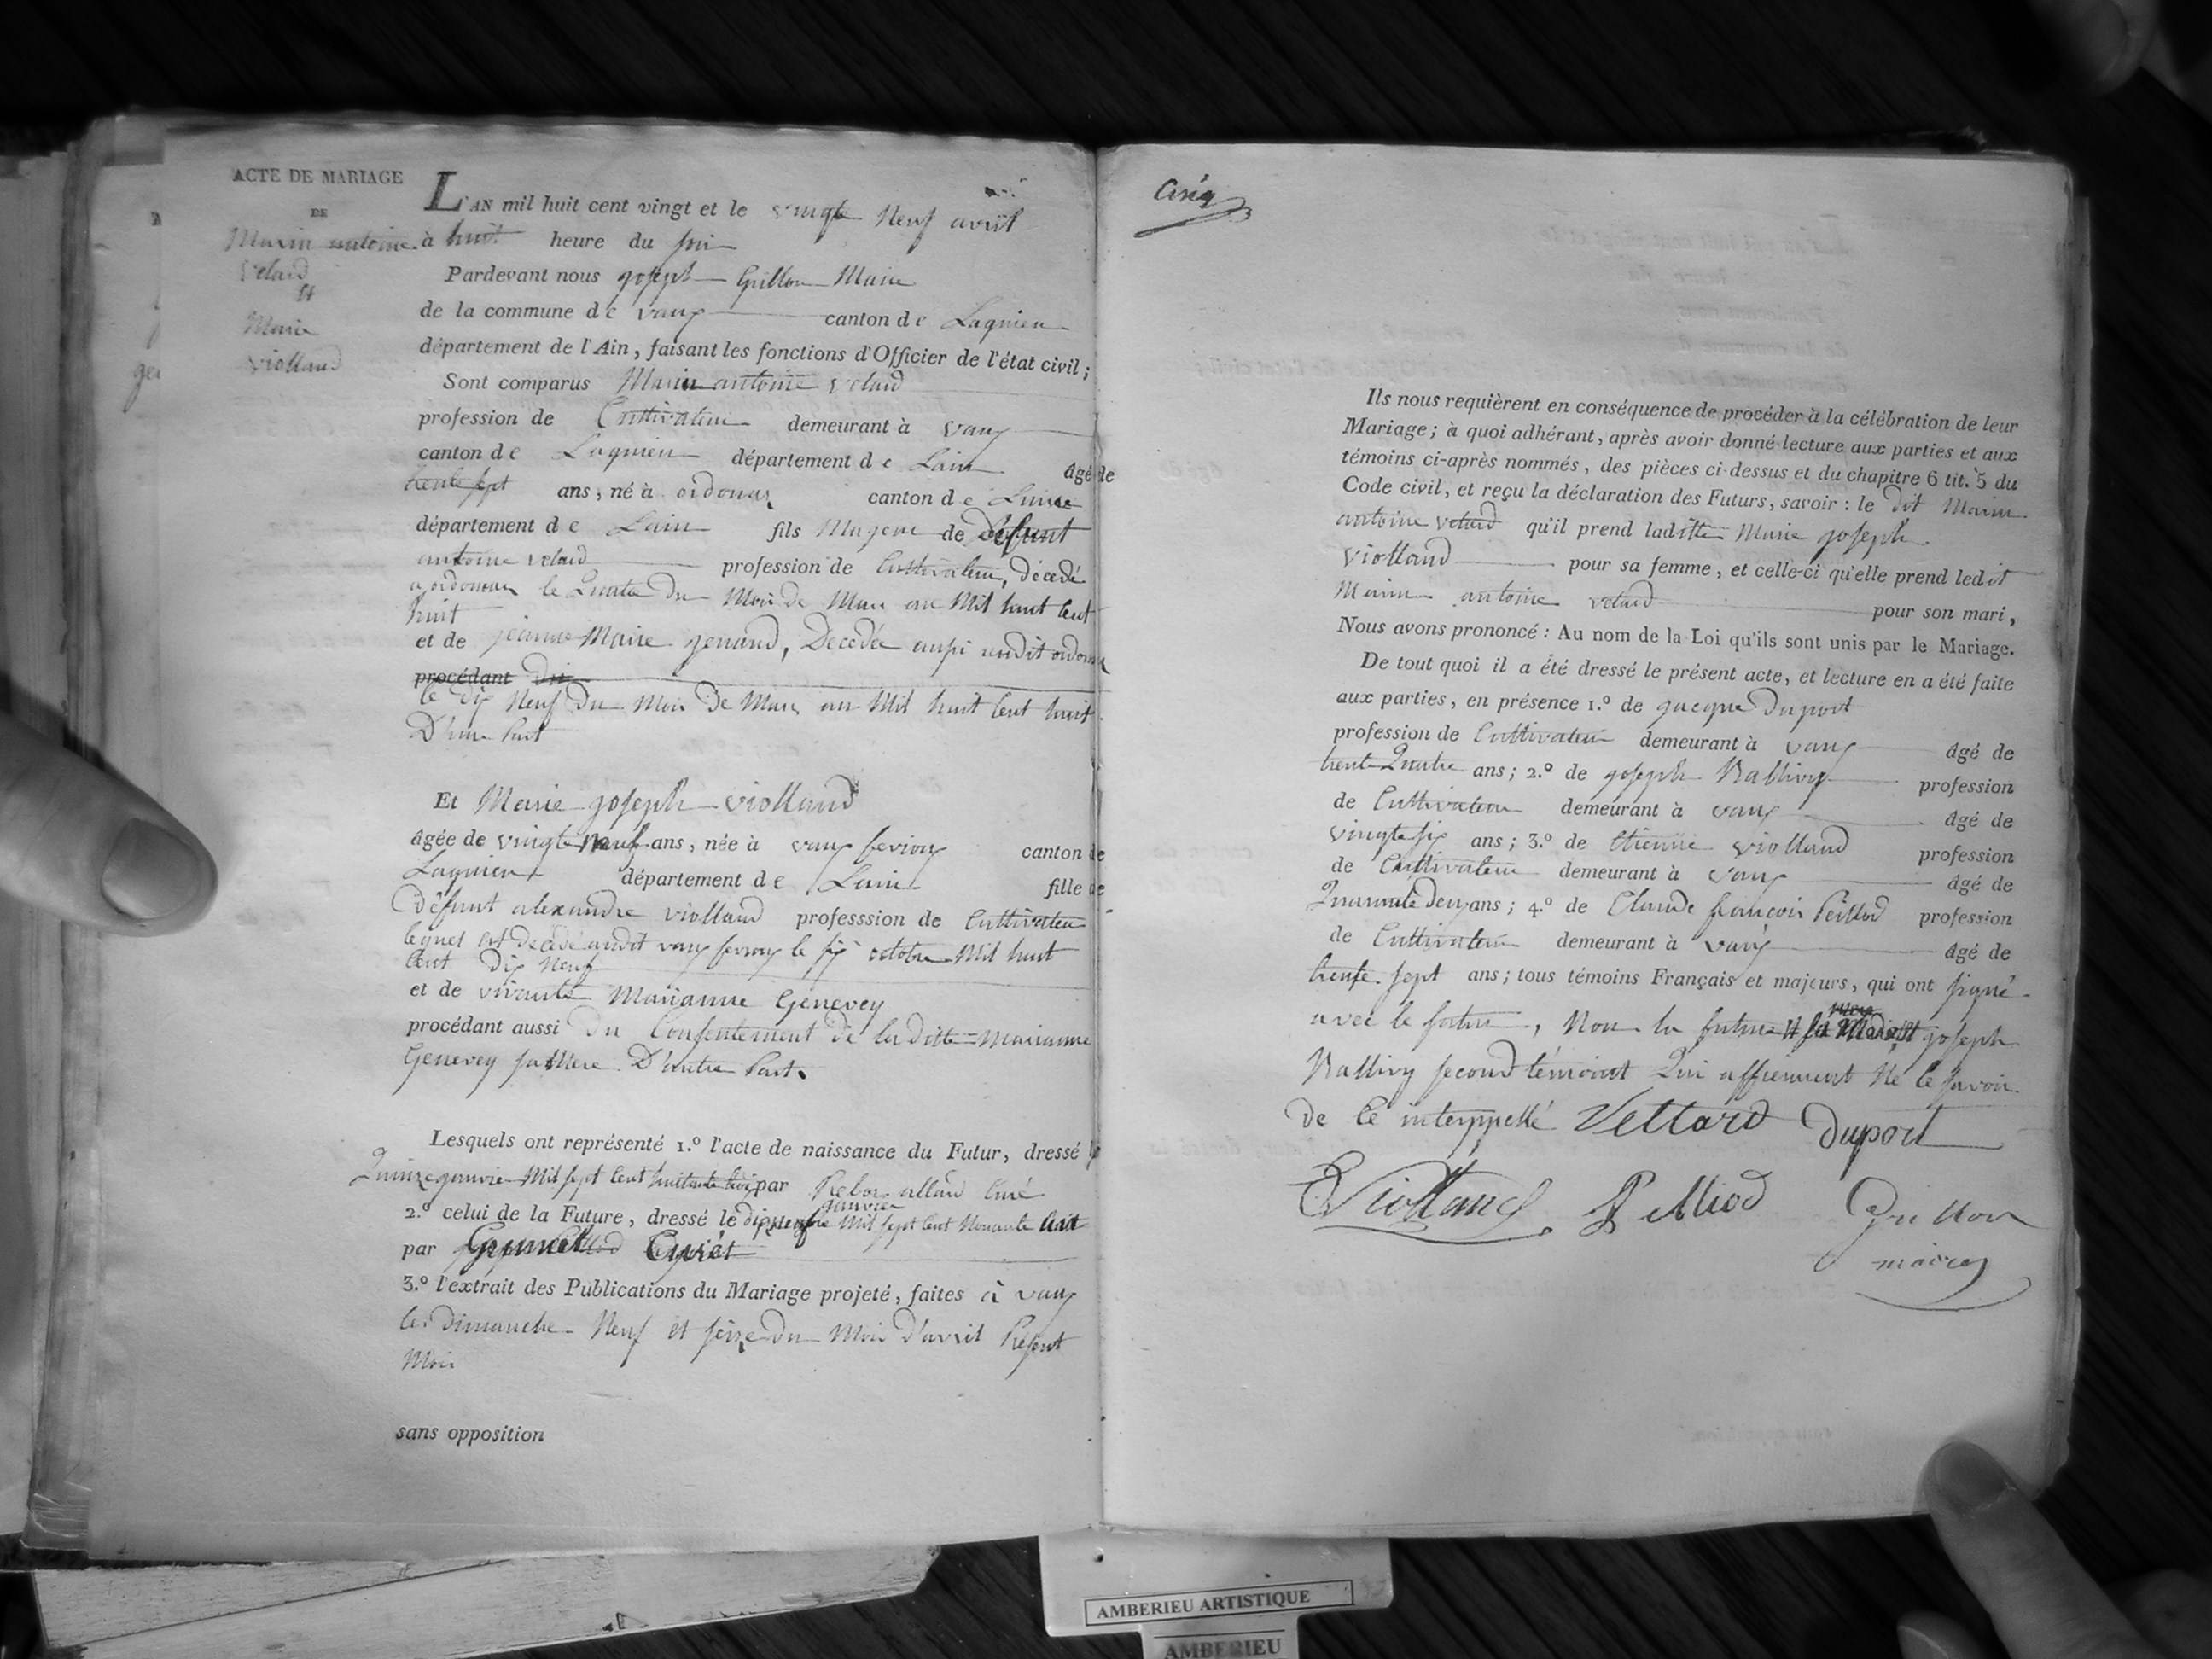 ACTE DE MARIAGE
DE
Marin antoine
velard
et
Marie
violland
L'AN mil huit cent vingt et le vingt Neuf avril
à huit heure du soir
Pardevant nous joseph Grillon Maire
de la commune de vaux canton de Lagnieu
département de l'Ain, faisant les fonctions d'Officier de l'état civil;
Sont comparus Marin antoine velard
profession de Cultivateur demeurant à vaux
canton de Lagnieu département de Lain âgé de
trente sept ans, né à ordonaz canton de
département de Lain fils Majeur de défunt
antoine velard profession de Cultivateur, décédé
a ordonaz le Quatre du Mois de Mars an Mil huit Cent
huit
et de jeanne Marie genand, Décédée aussi audit ordonaz
procédant du
le dix Neuf du Mois de Mars an Mil huit Cent huit
D'une Part
Et Marie joseph violland
âgée de vingt Neuf ans, née à vaux fevroux canton de
Lagnieu département de Lain fille de
Défunt alexandre violland professsion de Cultivateur
lequel est décédé audit vaux fevroux le six octobre Mil huit
Cent dix Neuf
et de vivante Marianne Genevey
procédant aussi du Consentement de la ditte = Marianne
Genevey sa Mere D'autre Part.
Lesquels ont représenté 1.º l'acte de naissance du Futur, dressé le
Quinze janvier Mil sept Cent huitante trois par allard Curé
2.º celui de la Future, dressé le dix neuf janvier Mil sept Cent Nonante
par
3.º l'extrait des Publications du Mariage projeté, faites à vaux
les Dimanche Neuf et seize du Mois d'avril Présent
Mois
sans opposition
Cinq
Ils nous requièrent en conséquence de procéder à la célébration de leur
Mariage; à quoi adhérant, après avoir donné lecture aux parties et aux
témoins ci-après nommés, des pièces ci-dessus et du chapitre 6 tit. 5 du
Code civil, et reçu la déclaration des Futurs, savoir: le dit Marin
antoine velard qu'il prend laditte Marie joseph
violland pour sa femme, et celle-ci qu'elle prend ledit
Marin antoine velard pour son mari,
Nous avons prononcé: Au nom de la Loi qu'ils sont unis par le Mariage.
De tout quoi il a été dressé le présent acte, et lecture en a été faite
aux parties, en présence 1.º de jacque Duport
profession de Cultivateur demeurant à vaux âgé de
trente Quatre ans; 2.º de joseph Ballivy profession
de Cultivateur demeurant à vaux âgé de
vingt six ans; 3.º de Etienne violland profession
de Cultivateur demeurant à vaux âgé de
Quarante deux ans; 4.º de Claude françois Peilliod profession
de Cultivateur demeurant à vaux âgé de
trente sept ans; tous témoins Français et majeurs, qui ont signé
avec le futur, Non la future et sa mere et joseph
Ballivy second témoint Qui affirment Ne le savoir
de Ce interppellé Vellard duport
Violland Pelliod Grillon
maire
AMBERIEU ARTISTIQUE
AMBERIEU